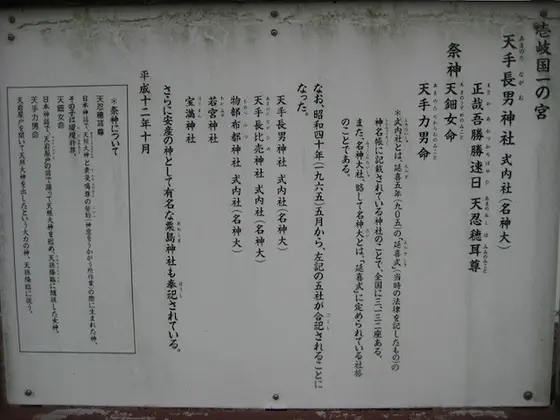 壱岐国一の宮
天手長男神社 式内社(名神大)
祭神
正哉吾勝勝速日 天忍穂耳尊
天鈿女命
天手力男命
*式内社とは、延喜五年(九〇五)の「延喜式」(当時の法律を記したもの)の
神名帳に記載されている神社のことで、全国に三、一三二座ある。
また、名神大社、略して名神大とは、「延喜式」に定められている社格
のことである。
なお、昭和四十年(一九六五)五月から、左記の五社が合祀されることに
なった。
天手長男神社 式内社(名神大)
天手長比売神社 式内社(名神大)
物部布都神社 式内社(名神大)
若宮神社
宝満神社
さらに安産の神として有名な粟島神社も奉祀されている。
平成十二年十月
*祭神について
天忍穂耳尊
日本神話で、天照大神と素戔嗚尊の誓約(神意をうかがう所作業)の際に生まれた神。
その子は瓊瓊杵尊。
天鈿女命
日本神話で、天岩屋戸の前で踊って天照大神を慰め、天孫降臨に随従した女神。
天手力男命
天岩屋戸を開いて天照大神を出したという大力の神。天孫降臨に従う。